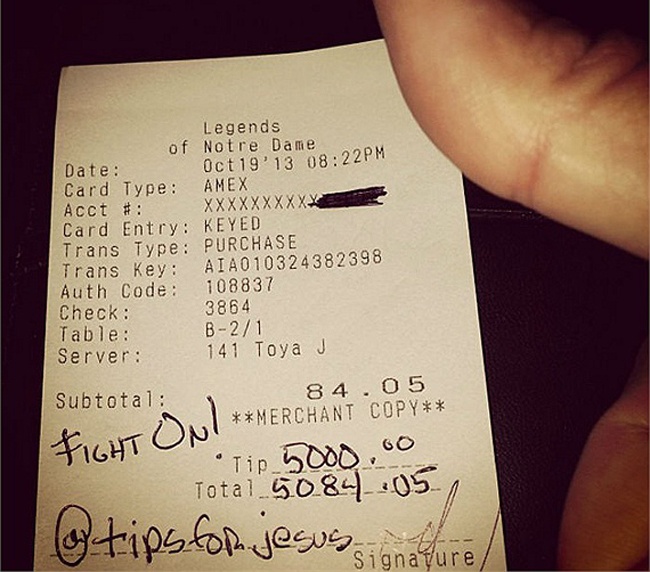 Legends
of Notre Dame
Date: Oct19'13 08:22PM
Card Type: AMEX
Acct #: XXXXXXXXXX
Card Entry: KEYED
Trans Type: PURCHASE
Trans Key: AIA010324382398
Auth Code: 108837
Check: 3864
Table: B-2/1
Server: 141 Toya J
Subtotal: 84.05
**MERCHANT COPY**
FIGHT ON!
Tip 5000.00
Total 5084.05
@tipsforjesus
Signature